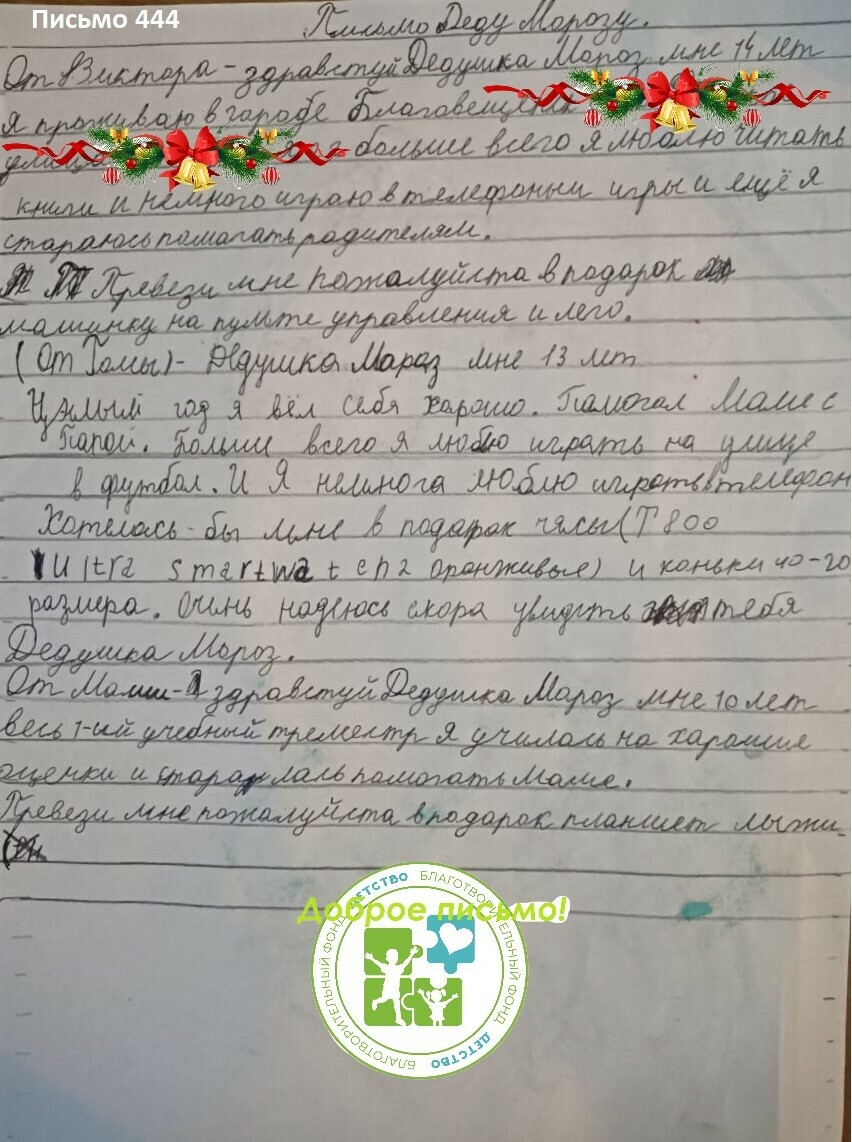 Письмо 444
Письмо Деду Морозу.
От Виктора - здравстуй Дедушка Мороз мне 14 лет
я проживаю в городе Благовещенк
улица больше всего я люблю читать
книги и немного играю в телефоныи игры и ещё я
стараюсь помогать родителям.
Превези мне пожалуйста в подарок
машинку на пульте управления и лего.
(От Томы) - Дедушка Мароз мне 13 лет
Цэлый год я вёл себя харошо. Памогал Маме с
Папой. Больше всего я люблю играть на улице
в футбол. И Я немнога люблю играть в телефон
Хотелась-бы мне в подарок часы (T 800
Ultra smartwatch 2 оранживые) и коньки 40-го
размера. Очень надеюсь скора увидеть тебя
Дедушка Мороз.
От Маши - здравстуй Дедушка Мороз мне 10 лет
весь 1-ый учебный треместр я училась на харошие
оценки и старалась помогать маме.
Превези мне пожалуйста в подарок планшет лыжи.
Доброе письмо!
БЛАГОТВОРИТЕЛЬНЫЙ ФОНД ДЕТСТВО БЛАГОТВОРИТЕЛЬНЫЙ ФОНД ДЕТСТВО